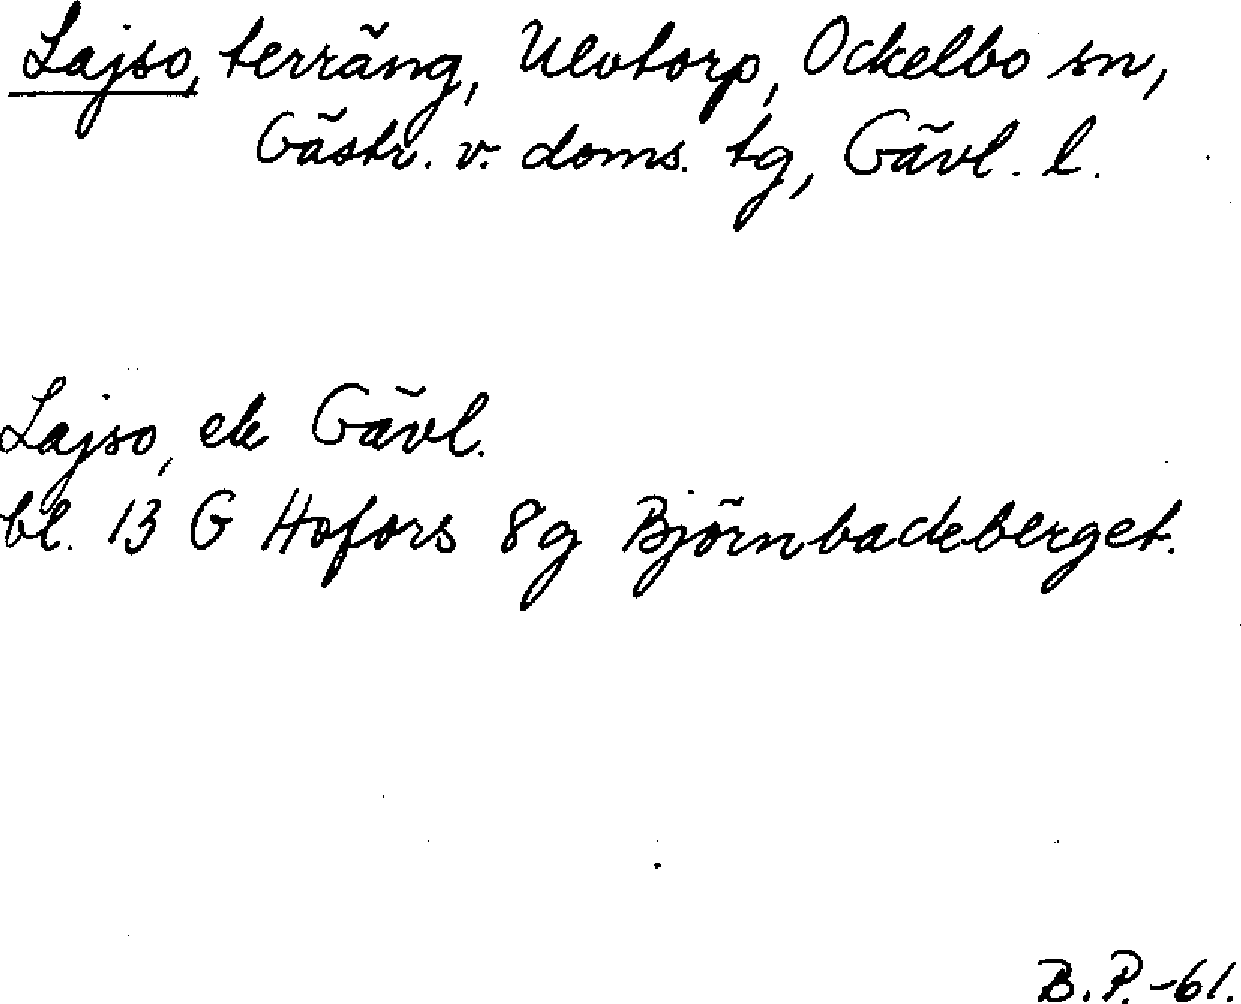 Lajso, terräng, Ulvtorp, Ockelbo sn,
Gästr. v. doms. tg, Gävl. l.
Lajso, ek Gävl.
bl. 13 G Hofors 8g Björnbackeberget.
B.P.-61.